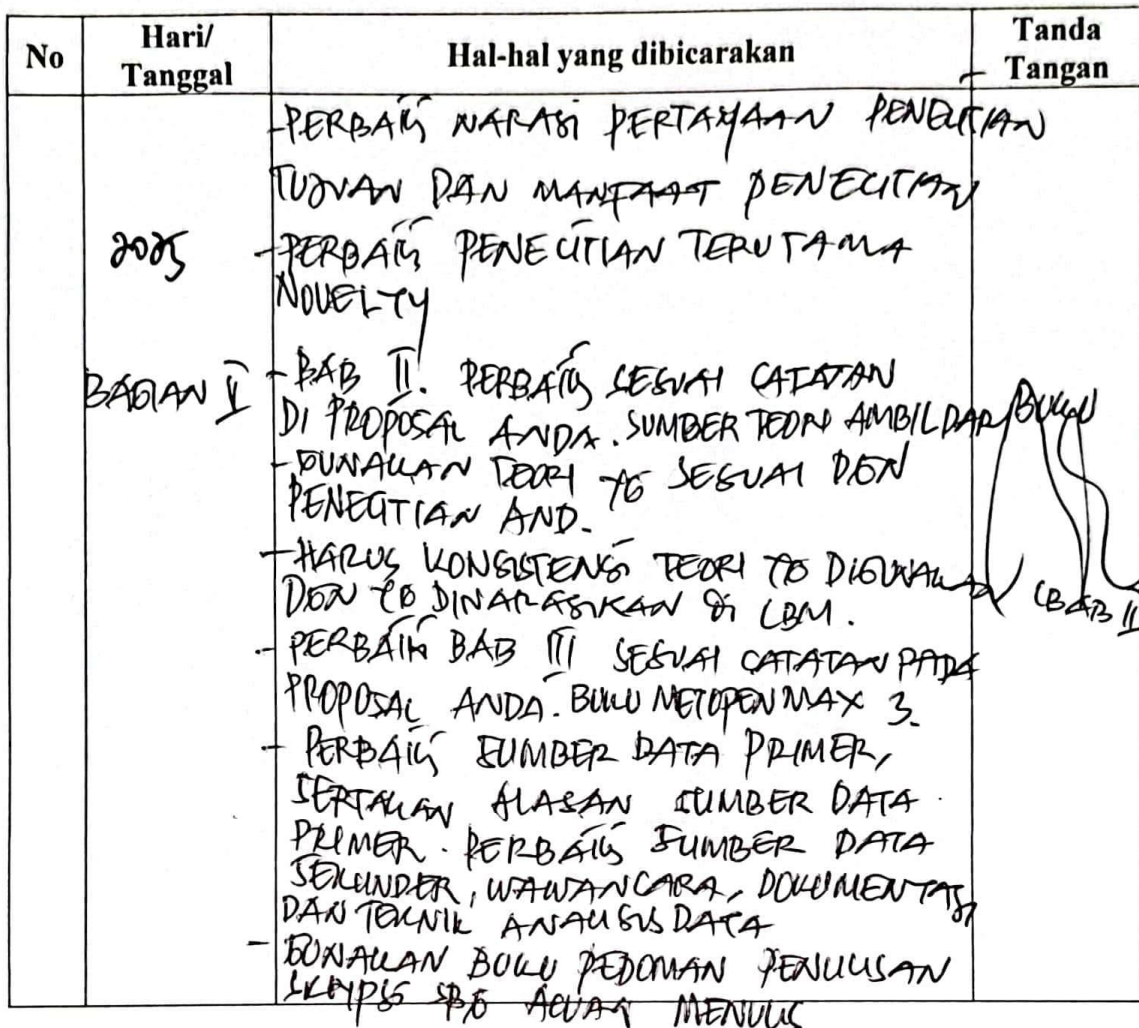 No Hari/ Tanggal Hal-hal yang dibicarakan Tanda Tangan
- PERBAIKI NARASI PERTAYAAN PENELITIAN
TUJUAN DAN MANFAAT PENELITIAN
2025 - PERBAIKI PENELITIAN TERUTAMA
NOVELTY
BAGIAN II - BAB II. PERBAIKI SESUAI CATATAN
DI PROPOSAL ANDA. SUMBER TEORI AMBIL DARI BUKU
- GUNAKAN TEORI YG SESUAI DGN
PENELITIAN AND.
- HARUS KONSISTENSI TEORI YG DIGUNAKAN (BAB II
DGN YG DINARASIKAN DI LBM.
- PERBAIKI BAB III SESUAI CATATAN PADA
PROPOSAL ANDA. BUKU METOPEN MAX 3.
- PERBAIKI SUMBER DATA PRIMER,
SERTAKAN ALASAN SUMBER DATA
PRIMER. PERBAIKI SUMBER DATA
SEKUNDER, WAWANCARA, DOKUMENTASI
DAN TEKNIK ANALISIS DATA
- GUNAKAN BUKU PEDOMAN PENULISAN
SKRIPSI SBG ACUAN MENULIS